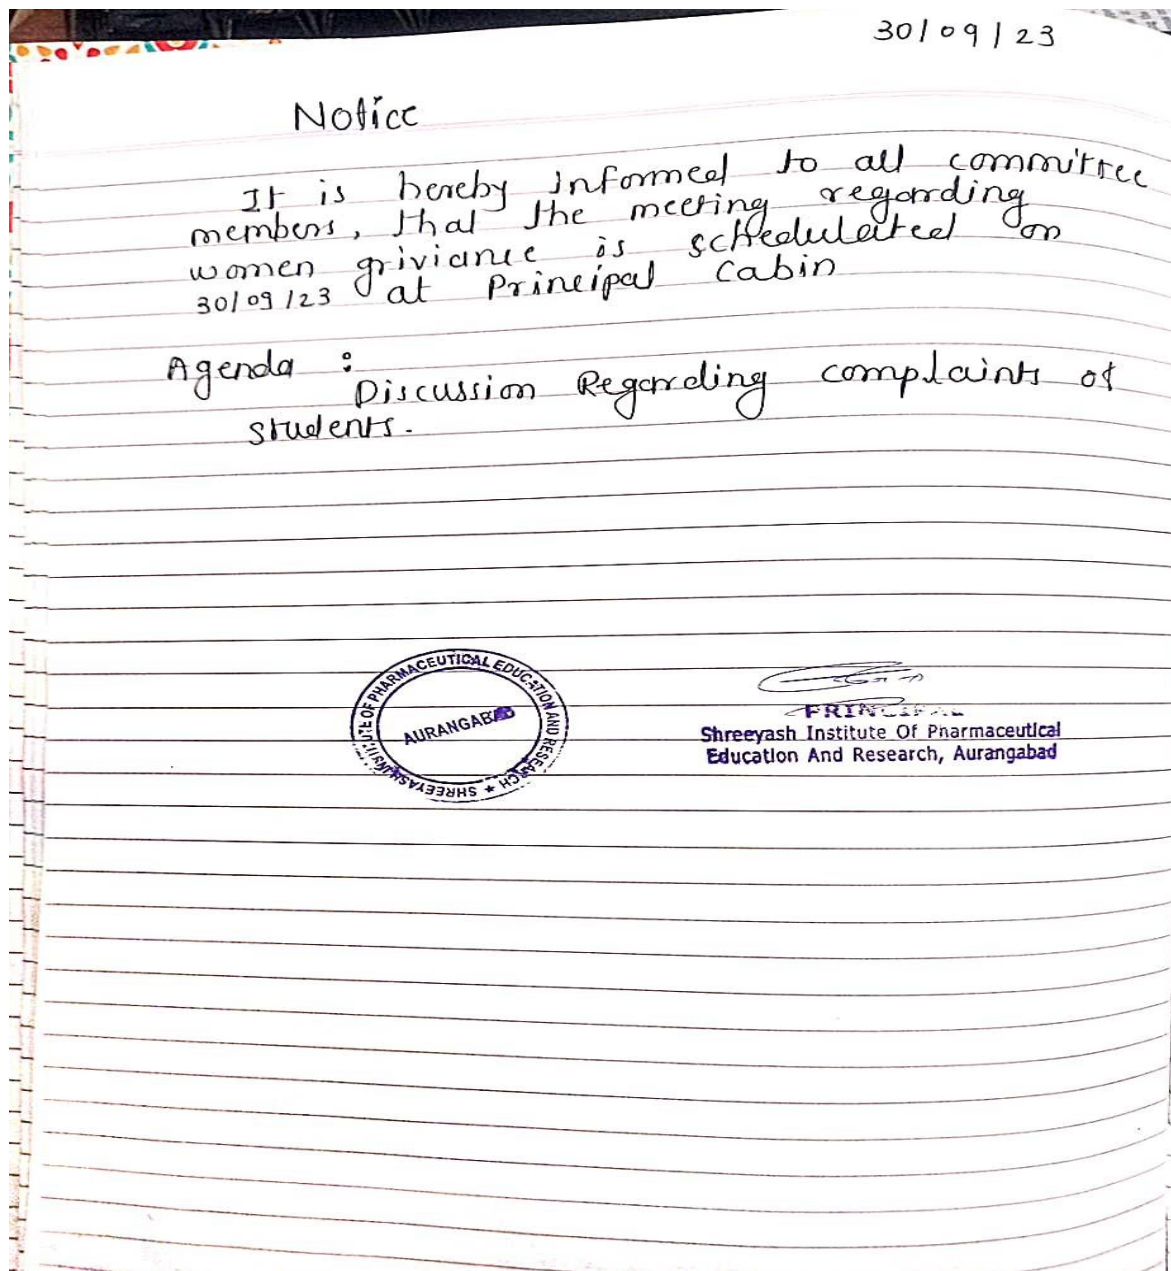 30/09/23
Notice
It is hereby informed to all committee
members, that the meeting regarding
women griviance is schedulated on
30/09/23 at Principal Cabin
Agenda :
Discussion Regarding complaints of
students.
SHREEYASH INSTITUTE OF PHARMACEUTICAL EDUCATION AND RESEARCH ★
AURANGABAD
PRINCIPAL
Shreeyash Institute Of Pharmaceutical
Education And Research, Aurangabad